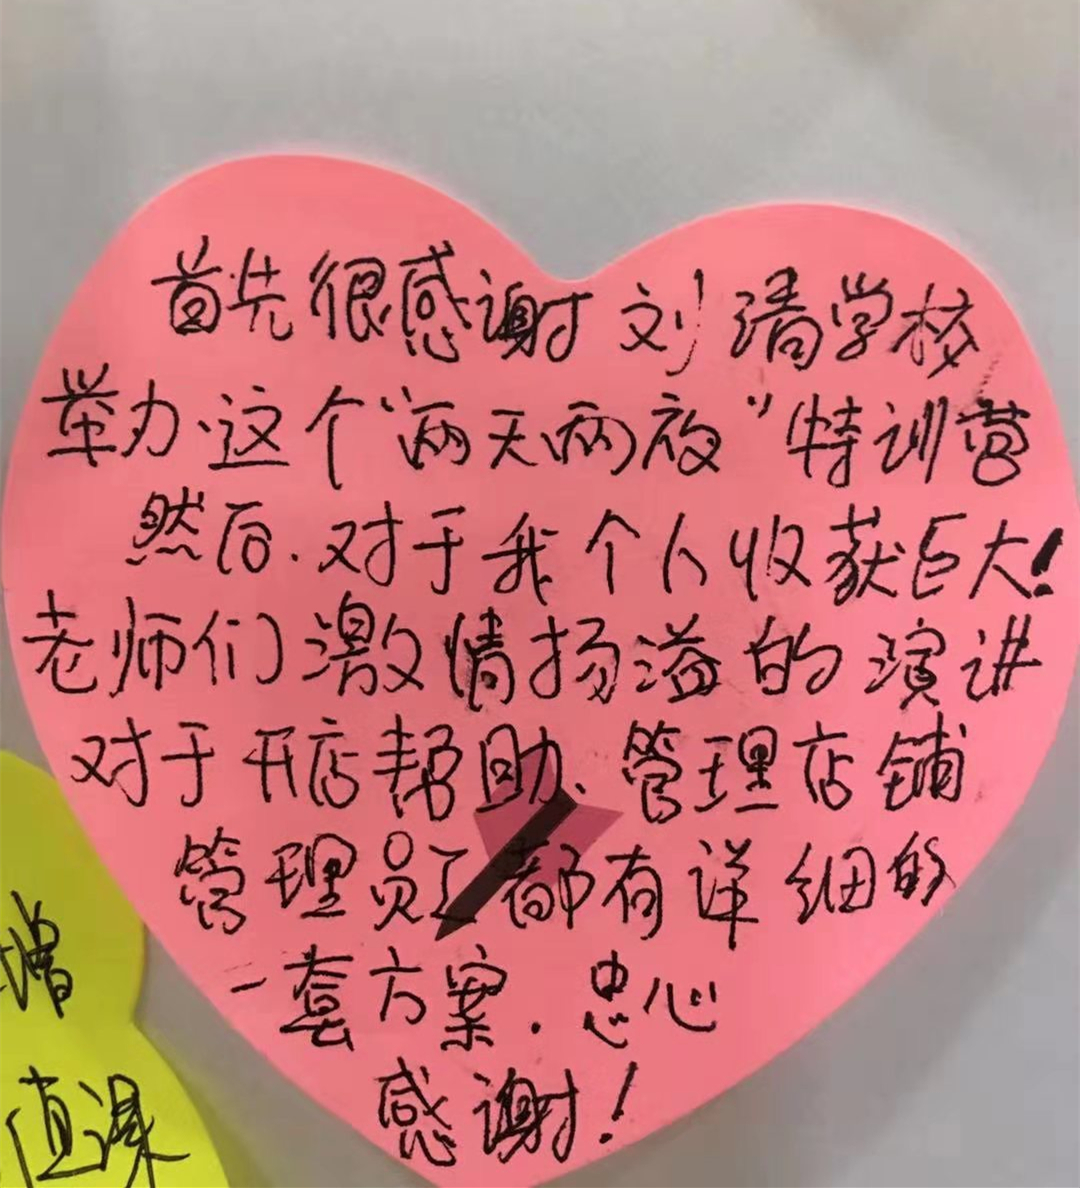 首先很感谢刘清学校
举办这个“两天两夜”特训营
然后.对于我个人收获巨大!
老师们激情扬溢的演讲
对于开店帮助、管理店铺
管理员工都有详细的
一套方案.忠心
感谢!
增
值课